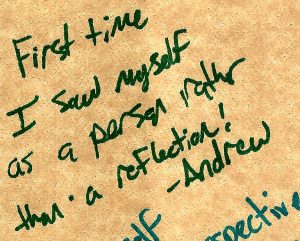 First time
I saw myself
as a person rather
than a reflection!
-Andrew
self
rspective